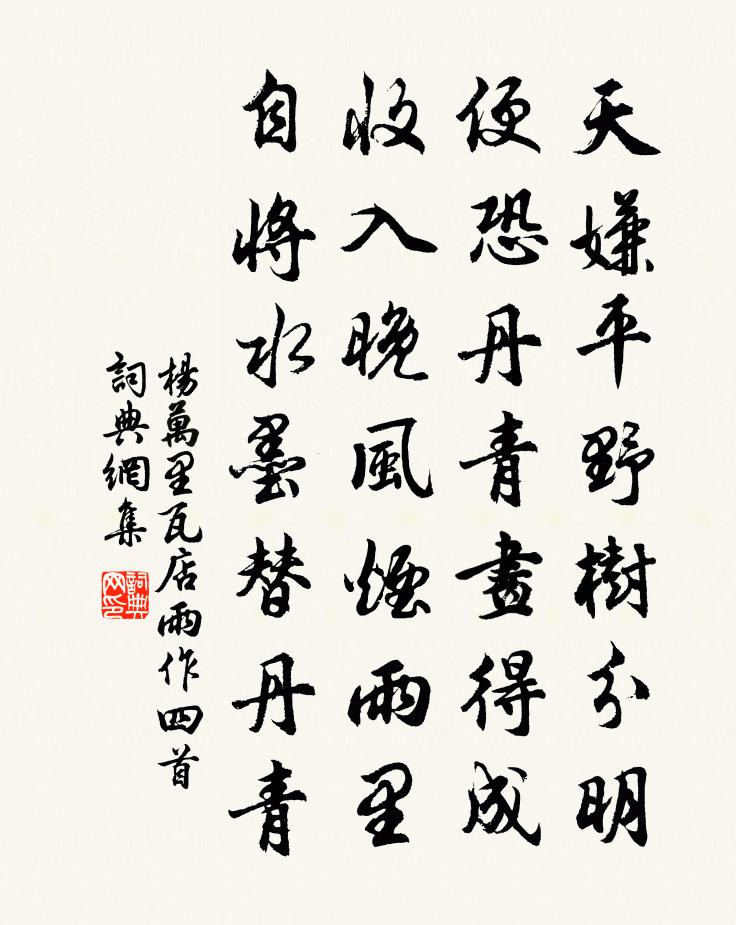 天嫌平野樹分明
便恐丹青畫得成
收入晚風煙雨里
自將水墨替丹青
楊萬里瓦店雨作四首
詞典網集
詞典網印